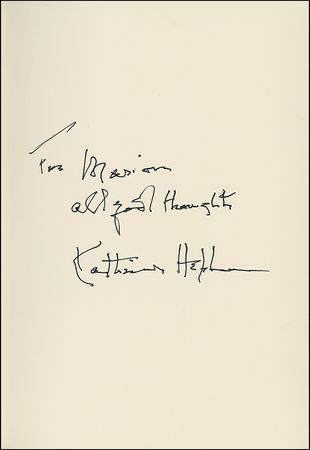 For Marion
all good thoughts
Katharine Hepburn